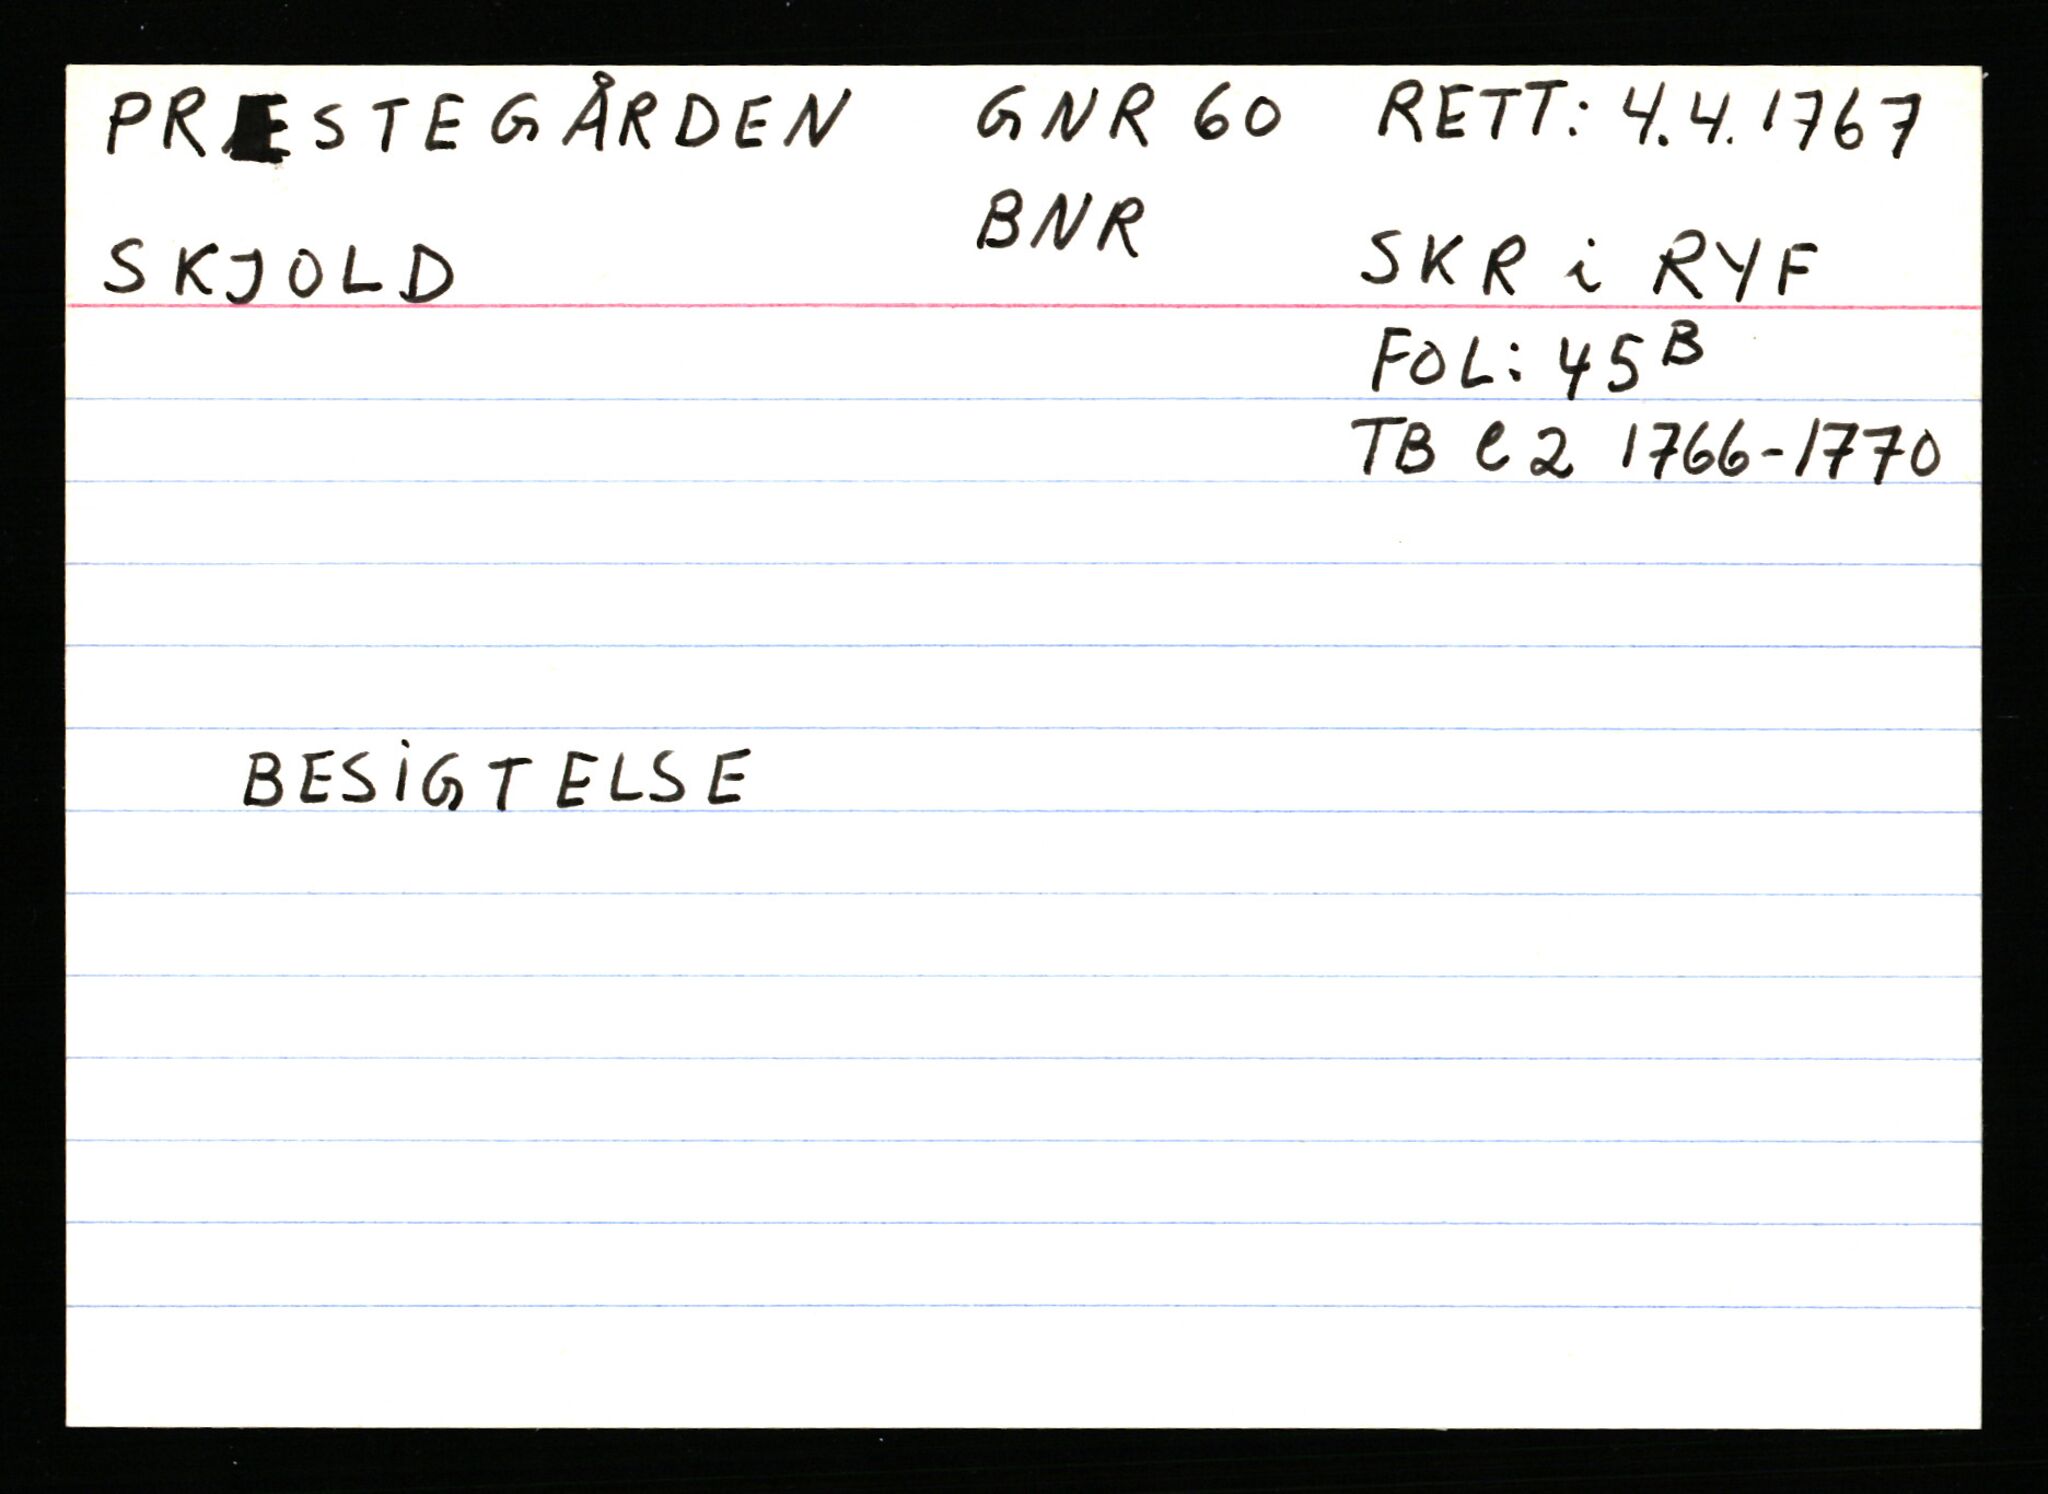 PRESTEGÅRDEN GNR 60 RETT: 4.4.1767
BNR
SKJOLD SKR i RYF
FOL: 45B
TB C2 1766-1770
BESIGTELSE